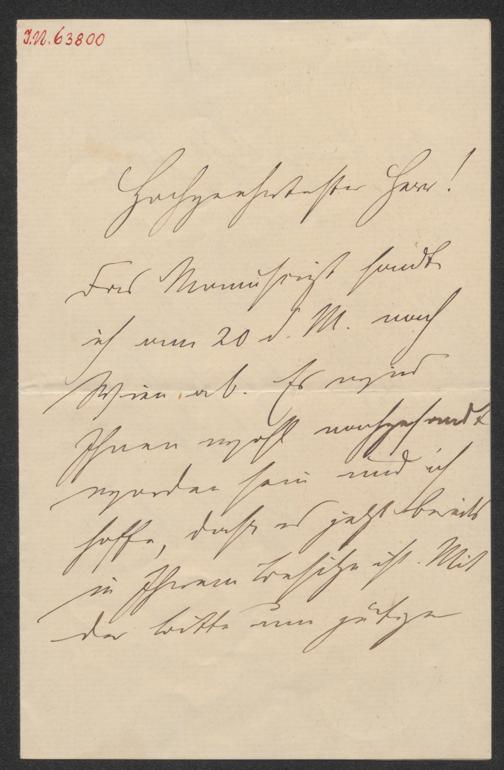 J.N. 63800
Hochgeehrtester Herr!
Das Manuscript sandte
ich am 20 d. M. nach
Wien ab. Es wird
Ihnen wohl nachgesandt
worden sein und ich
hoffe, dass es jetzt bereits
in Ihrem Besitze ist. Mit
der Bitte um gütige